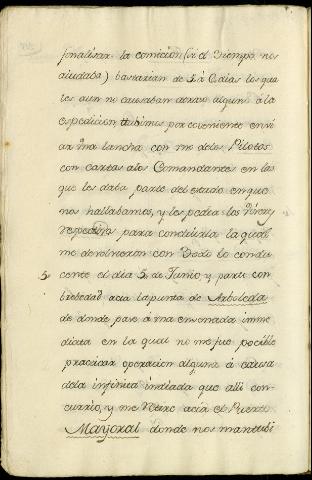 finalisar la comicion (si el tiempo nos
aiudaba) bastarian de 5 á 6 dias los qua
les aun no causaban atraso alguno á la
espedicion, tubimos por coveniente envi
ar una lancha con uno delos Pilotos
con cartas alos Comandantes en las
que les daba parte del estado en que
nos hallabamos, y les pedia los Viveres
respectivos para concluirla la qual
me devolvieron con todo lo condu
5. cente el dia 5 de Junio, y parti con
brebedad acia la punta de Arboleda
de donde pase á una ensenada inme
diata en la qual no me fue pocible
practicar operacion alguna á causa
dela infinita indiada que alli con
currio, y me retire acia el Puerto
Mayoral donde nos mantubi